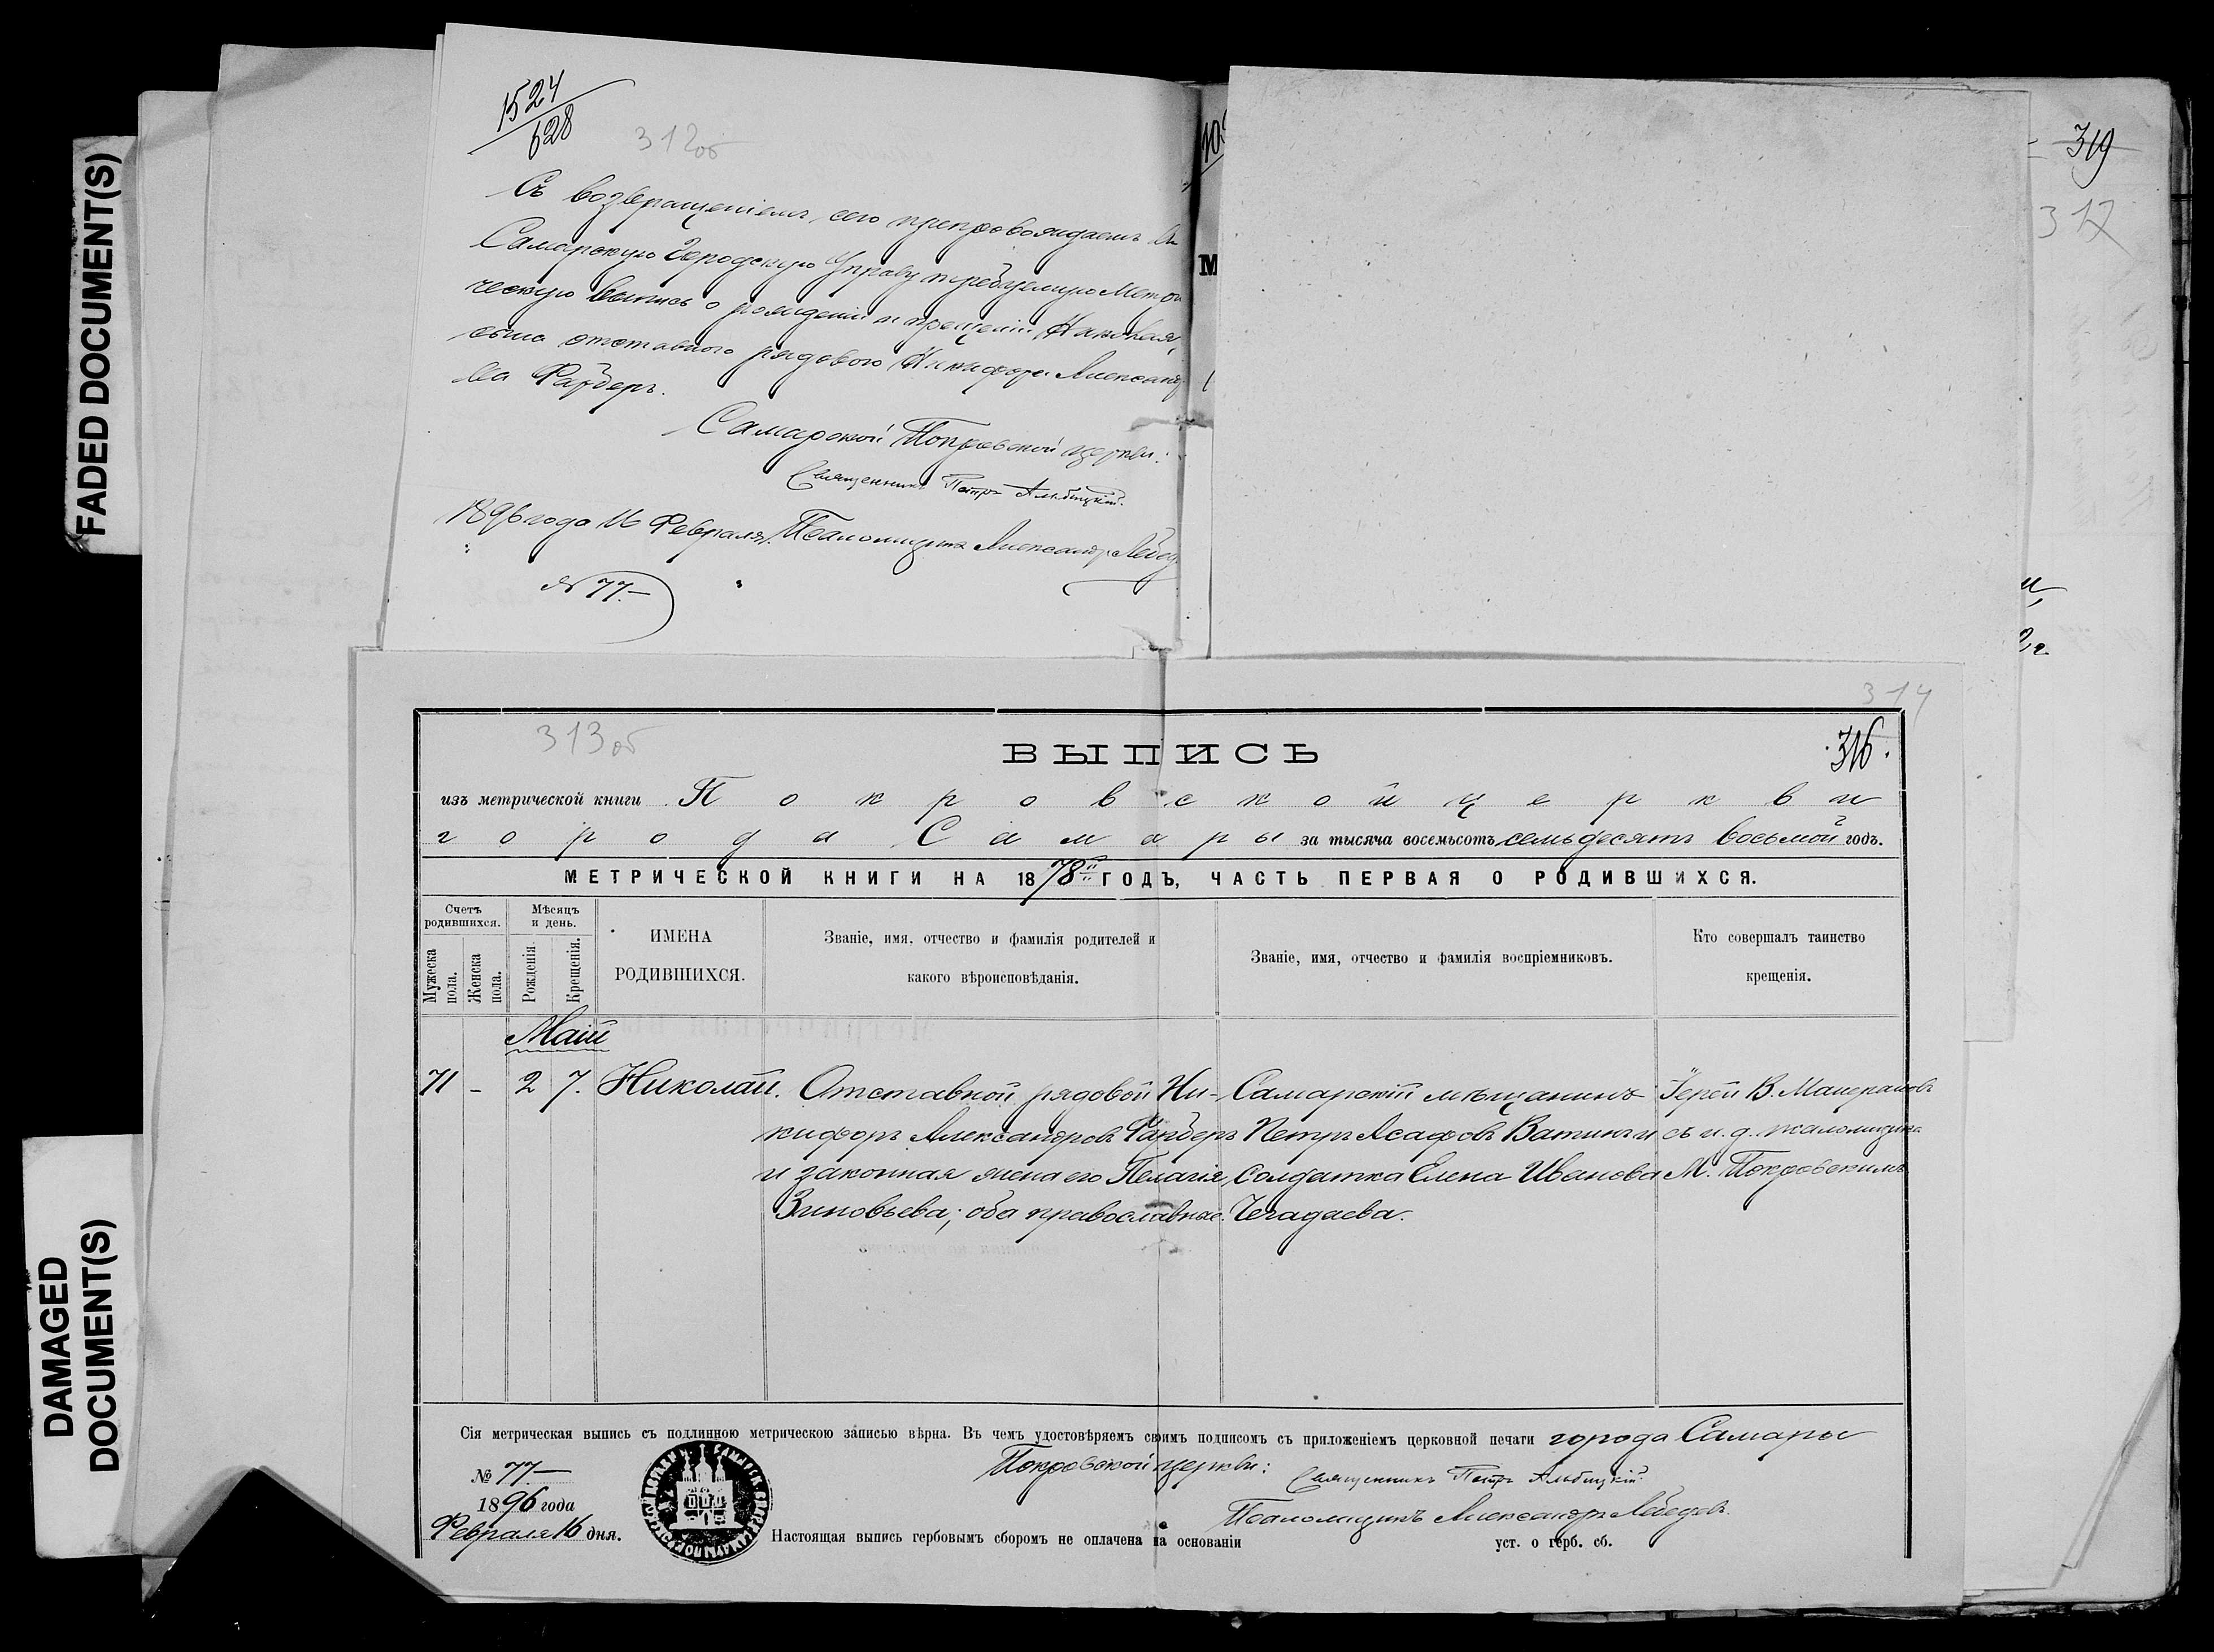 FADED DOCUMENT(S)
DAMAGED
DOCUMENT(S)
1524
628
312об
Съ возвращеніемъ сего препровождаемъ въ
Самарскую Городскую Управу требуемую Метри
ческую выпись о рожденіи и крещеніи Николая,
сына отставного рядового Никифора Александро
ва Фарберъ.
Самарской Покровской церкви:
Священникъ Петръ Альбицкій.
1896 года 16 Февраля. Псаломщикъ Александръ Лебед
№ 77.—
М
319
317
314
313об
316.
ВЫПИСЬ
изъ метрической книги Покровской церкви
города Самары за тысяча восемьсотъ семьдесятъ восьмой годъ.
МЕТРИЧЕСКОЙ КНИГИ НА 1878й ГОДЪ, ЧАСТЬ ПЕРВАЯ О РОДИВШИХСЯ.
Счетъ
родившихся.
Мужеска
пола.
Женска
пола.
Мѣсяцъ
и день.
Рожденія
Крещенія.
ИМЕНА
РОДИВШИХСЯ.
Званіе, имя, отчество и фамилія родителей и
какого вѣроисповѣданія.
Званіе, имя, отчество и фамилія воспріемниковъ.
Кто совершалъ таинство
крещенія.
Маій
71 – 2 7. Николай. Отставной рядовой Ни- Самарскій мѣщанинъ Іерей В.
кифоръ Александровъ Фарберъ Петръ Асафовъ Ватинъ и съ и. д. псаломщика
и законная жена его Пелагія Солдатка Елена Иванова М. Покровскимъ
Зиновьева; оба православные. Чегадаева.
Сія метрическая выпись съ подлинною метрическою записью вѣрна. Въ чемъ удостовѣряемъ своимъ подписомъ съ приложеніемъ церковной печати города Самары
Покровской церкви:
Священникъ Петръ Альбицкій.
Псаломщикъ Александръ Лебедевъ.
№ 77—
1896 года
Февраля 16 дня.
Настоящая выпись гербовымъ сборомъ не оплачена на основаніи уст. о герб. сб.